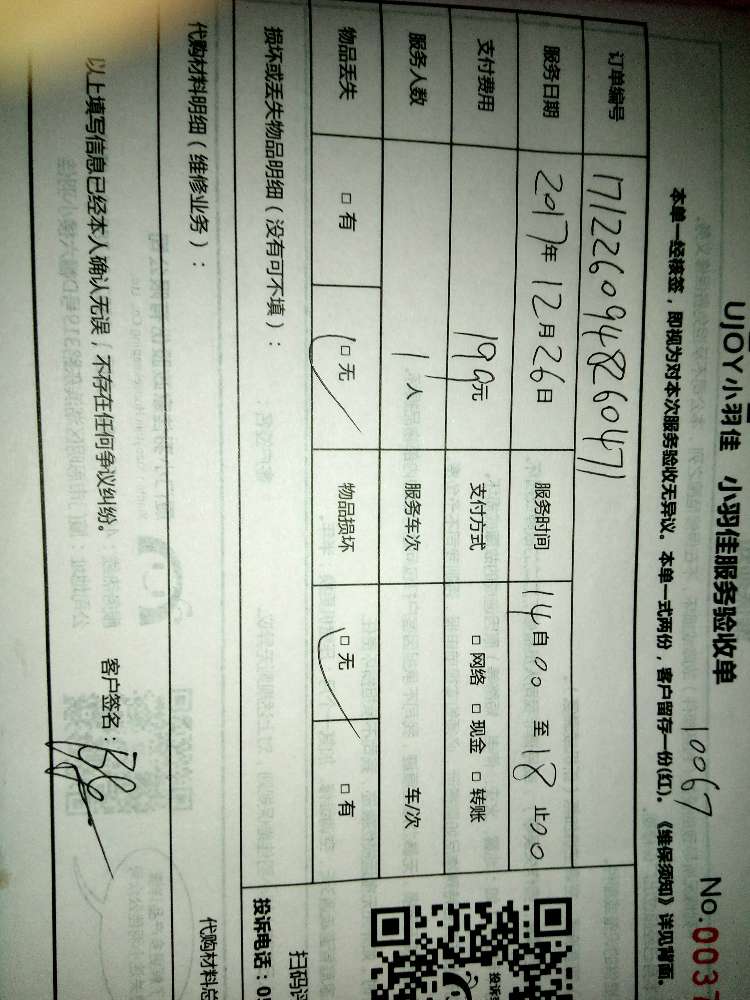 UJOY小羽佳 小羽佳服务验收单
10067
No.003
本单一经接签，即视为对本次服务验收无异议。本单一式两份，客户留存一份(红)。《维保须知》详见背面。
订单编号 1712260948260471
服务日期 2017年12月26日 服务时间 14自00 至 18止00
支付费用 199元 支付方式 □ 网络 □ 现金 □ 转账
服务人数 1人 服务车次 车/次
物品丢失 □ 有 □ 无 物品损坏 □ 无 □ 有
损坏或丢失物品明细（没有可不填）：
代购材料明细（维修业务）：
代购材料总
以上填写信息已经本人确认无误，不存在任何争议纠纷。 客户签名：
投诉
扫码
投诉电话：05